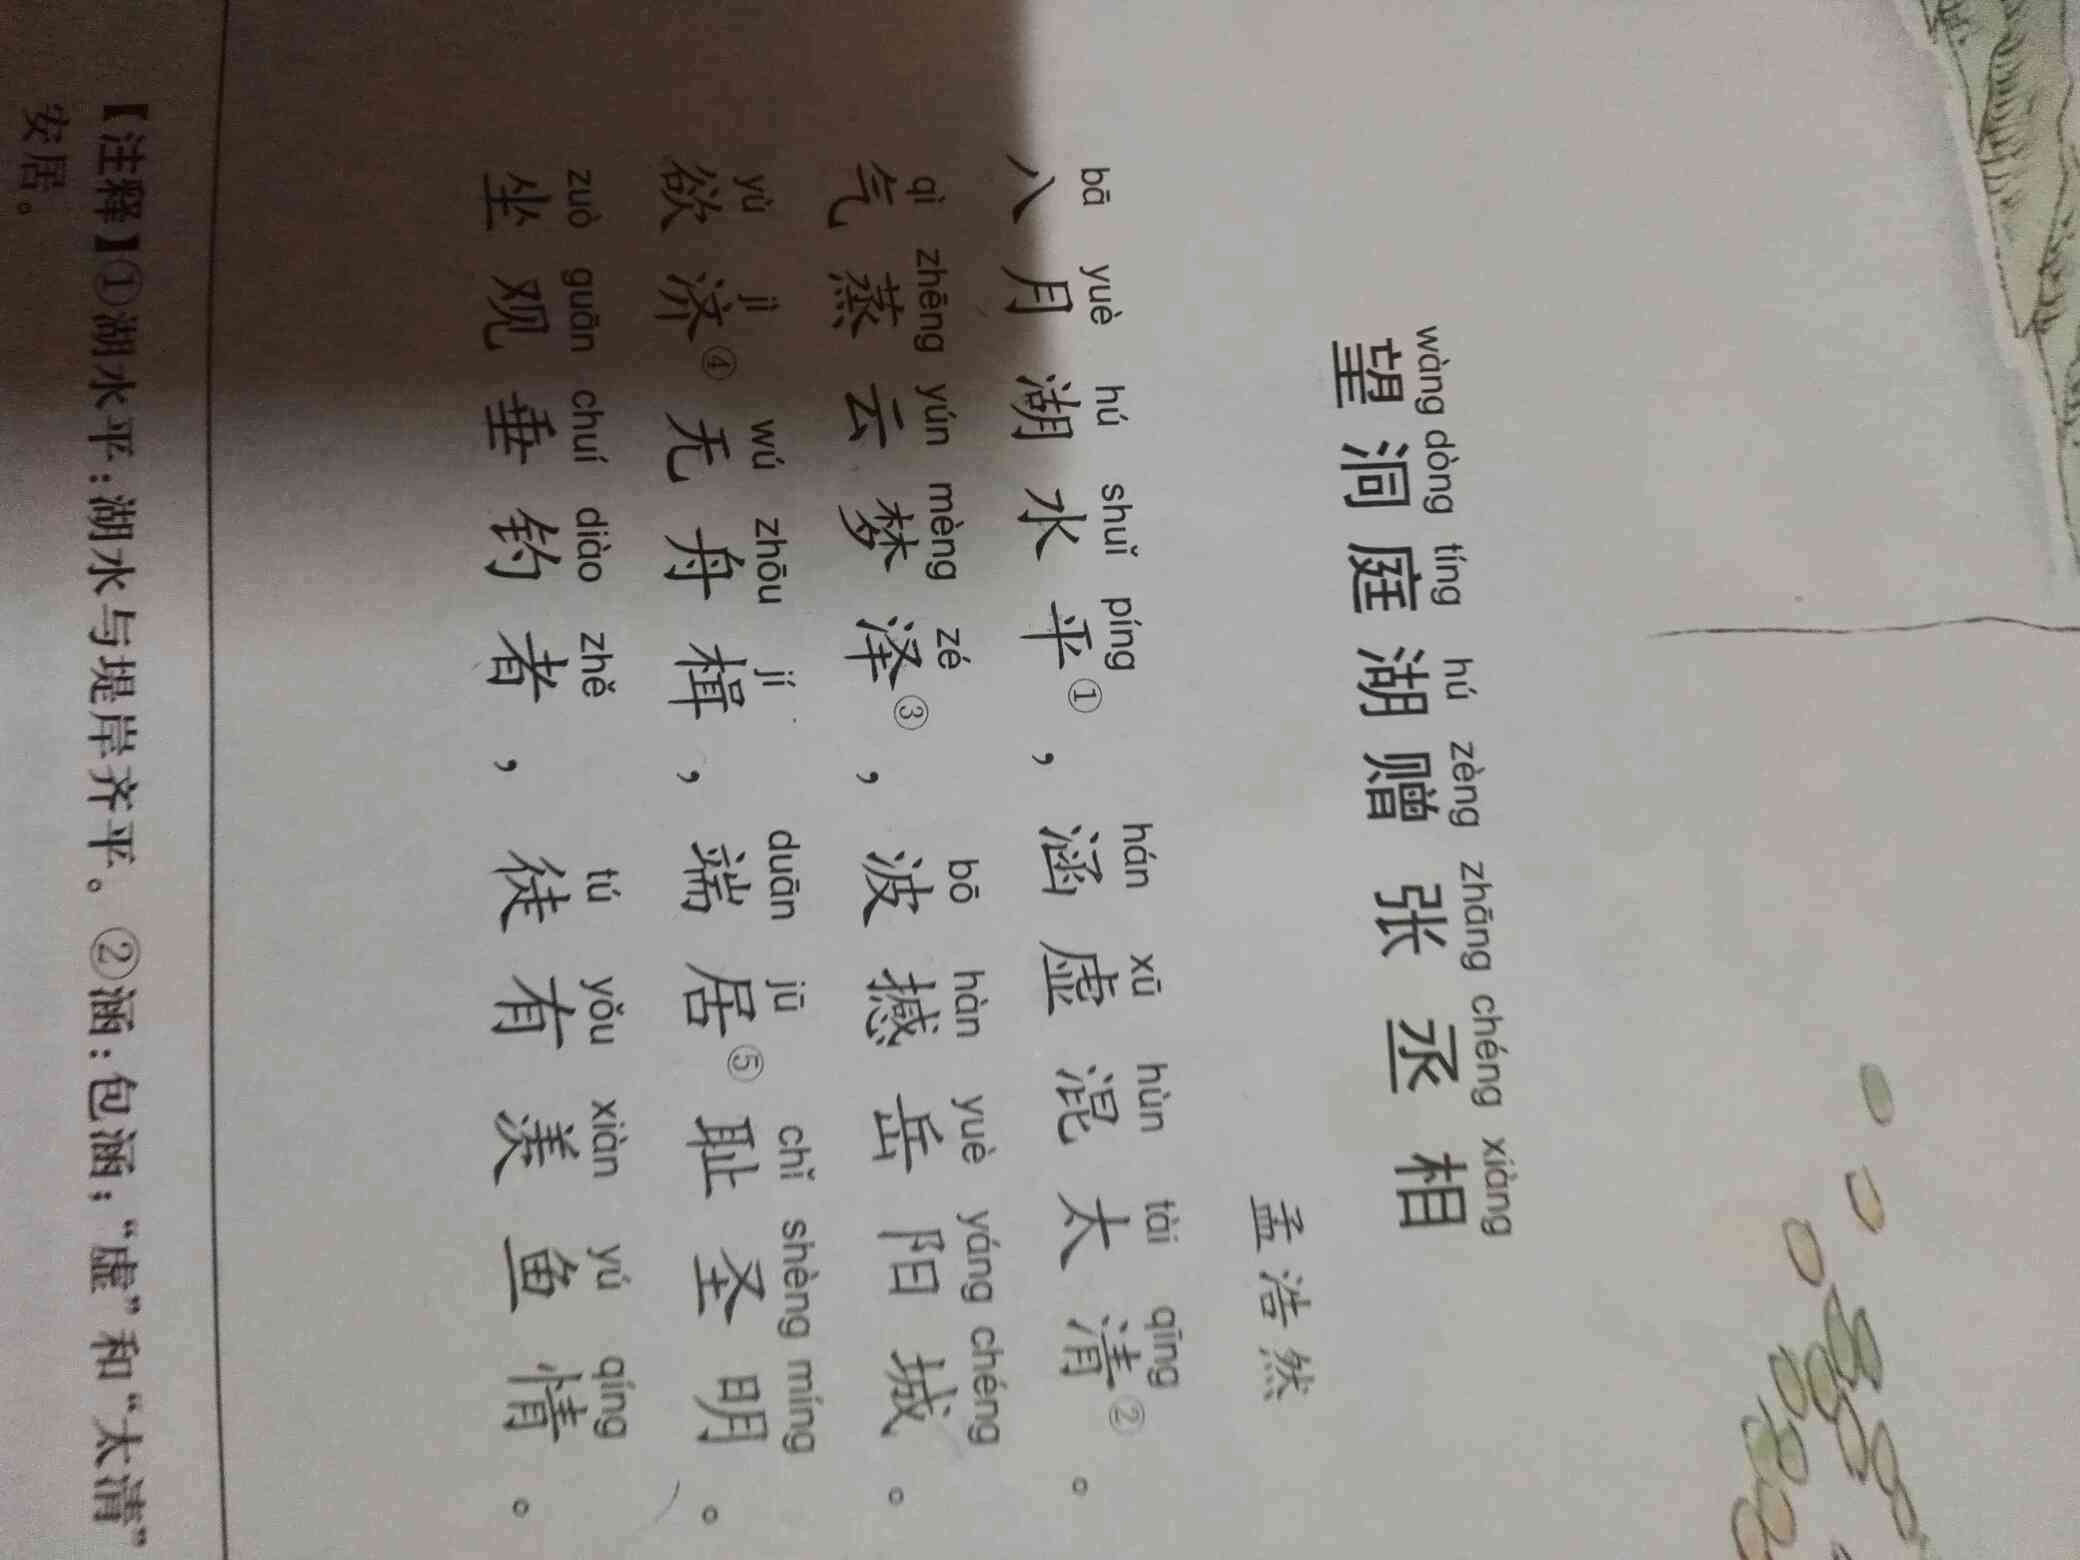 wàng dòng tíng hú zèng zhāng chéng xiàng
望洞庭湖赠张丞相
孟浩然
bā yuè hú shuǐ píng hán xū hùn tài qīng
八月湖水平①，涵虚混太清②。
qì zhēng yún mèng zé bō hàn yuè yáng chéng
气蒸云梦泽③，波撼岳阳城。
yù jì wú zhōu jí duān jū chǐ shèng míng
欲济④无舟楫，端居⑤耻圣明。
zuò guān chuí diào zhě tú yǒu xiàn yú qíng
坐观垂钓者，徒有羡鱼情。
【注释】①湖水平：湖水与堤岸齐平。②涵：包涵；“虚”和“太清”
安居。